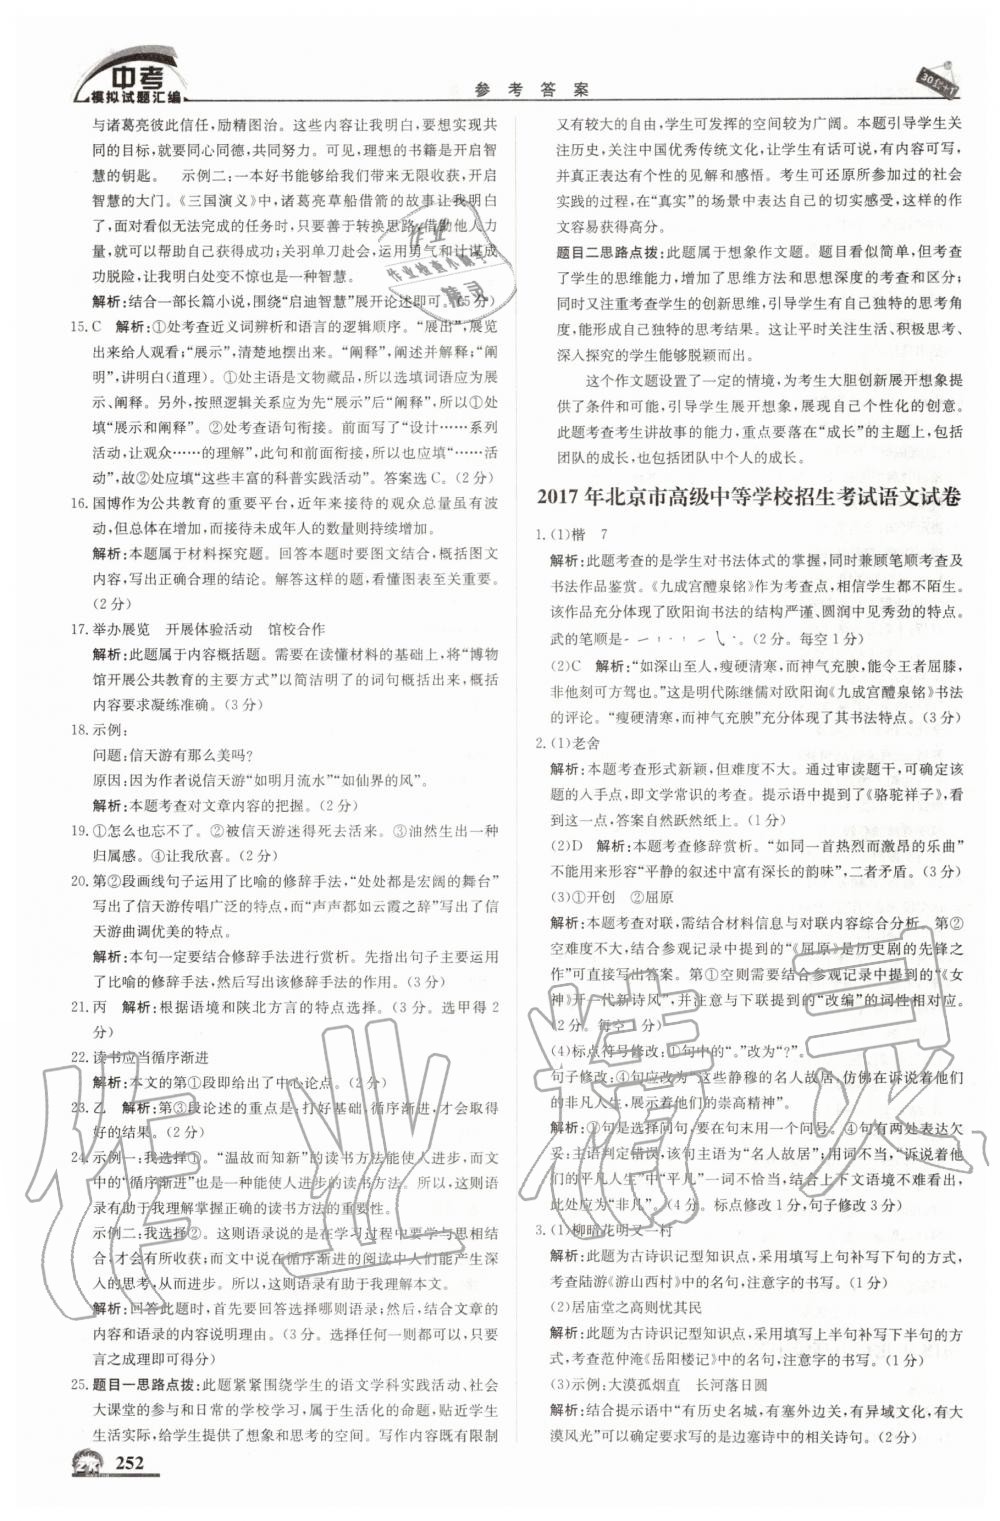 中考
模拟试题汇编
参考答案
与诸葛亮彼此信任,励精图治。这些内容让我明白,要想实现共
同的目标,就要同心同德,共济时艰。可见,理想的书籍是开启智
慧的钥匙。　示例二:一本好书能够给我们带来无限收获,开启
智慧的大门。《三国演义》中,诸葛亮草船借箭的故事让我明白
了,面对看似无法完成的任务时,只要善于转换思路,借助他人力
量,就可以帮助自己获得成功;关羽单刀赴会,运用勇气和计谋成
功脱险,让我明白处变不惊也是一种智慧。
解析:结合一部长篇小说,围绕“启迪智慧”展开论述即可。(5分)
15. C　解析:①处考查近义词辨析和语言的逻辑顺序。“展出”,展览
出来给人观看;“展示”,清楚地摆出来。“阐释”,阐述并解释;“阐
明”,讲明白(道理)。①处主语是文物藏品,所以选填词语应为展
示、阐释。另外,按照逻辑关系应为先“展示”后“阐释”,所以①处
填“展示和阐释”。②处考查语句衔接。前面写了“设计……系列
活动,让观众……的理解”,此句和前面衔接,所以仍应填“……活
动”,故②处应填“这些丰富的科普实践活动”。答案选C。(2分)
16. 国博作为公共教育的重要平台,近年来接待的观众总量虽有波
动,但总体在增加,而接待未成年人的数量则持续增加。
解析:本题属于材料探究题。回答本题时要图文结合,概括图文
内容,写出正确合理的结论。解答这样的题,看懂图表至关重要。
(2分)
17. 举办展览　开展体验活动　馆校合作
解析:此题属于内容概括题。需要在读懂材料的基础上,将“博物
馆开展公共教育的主要方式”以简洁明了的词句概括出来,概括
内容要求凝练准确。(3分)
18. 示例:
问题:信天游有那么美吗?
原因:因为作者说信天游“如明月流水”“如仙界的风”。
解析:本题考查对文章内容的把握。(2分)
19. ①怎么也忘不了。②被信天游迷得死去活来。③油然生出一种
归属感。④让我欣喜。(2分)
20. 第②段画线句子运用了比喻的修辞手法,“处处都是宏阔的舞台”
写出了信天游传唱广泛的特点,而“声声都如云霞之辞”写出了信
天游曲调优美的特点。
解析:本句一定要结合修辞手法进行赏析。先指出句子主要运用
了比喻的修辞手法,然后写出该修辞手法的作用。(3分)
21. 丙　解析:根据语境和陕北方言的特点选择。(3分。选甲得2
分)
22. 读书应当循序渐进
解析:本文的第①段即给出了中心论点。(2分)
23. 乙　解析:第③段论述的重点是:打好基础,循序渐进,才会取得
好的结果。(2分)
24. 示例一:我选择①。“温故而知新”的读书方法能使人进步,而文
中的“循序渐进”也是一种能使人进步的读书方法。所以,这则语
录有助于我理解掌握正确的读书方法的重要性。
示例二:我选择②。这则语录说的是在学习过程中学与思相结
合,才会有所收获;而文中说在循序渐进的阅读中人们能产生深
入的思考,从而进步。所以,这则语录有助于我理解本文。
解析:回答此题时,首先要回答选择哪则语录;然后,结合文章的
内容和语录的内容说明理由。(3分。选择任何一个都行,只要
言之成理即可得分)
25. 题目一思路点拨:此题紧紧围绕学生的语文学科实践活动、社会
大课堂的参与和日常的学校学习,属于生活化的命题,贴近学生
生活实际,给学生提供了想象和思考的空间。写作内容既有限制
又有较大的自由,学生可发挥的空间较为广阔。本题引导学生关
注历史,关注中国优秀传统文化,让学生有话可说,有内容可写,
并真正表达有个性的见解和感悟。考生可还原所参加过的社会
实践的过程,在“真实”的场景中表达自己的切实感受,这样的作
文容易获得高分。
题目二思路点拨:此题属于想象作文题。题目看似简单,但考查
了学生的思维能力,增加了思维方法和思想深度的考查和区分;
同时又注重考查学生的创新思维,引导学生有自己独特的思考角
度,能形成自己独特的思考结果。这让平时关注生活、积极思考、
深入探究的学生能够脱颖而出。
这个作文题设置了一定的情境,为考生大胆创新展开想象提
供了条件和可能,引导学生展开想象,展现自己个性化的创意。
此题考查考生讲故事的能力,重点要落在“成长”的主题上,包括
团队的成长,也包括团队中个人的成长。
2017年北京市高级中等学校招生考试语文试卷
1. (1)楷　7
解析:此题考查的是学生对书法体式的掌握,同时兼顾笔顺考查及
书法作品鉴赏。《九成宫醴泉铭》作为考查点,相信学生都不陌生。
该作品充分体现了欧阳询书法的结构严谨、圆润中见秀劲的特点。
武的笔顺是 (2分。每空1分)
(2)C　解析:“如深山至人,瘦硬清寒,而神气充腴,能令王者屈膝,
非他刻可方驾也。”这是明代陈继儒对欧阳询《九成宫醴泉铭》书法
的评论。“瘦硬清寒,而神气充腴”充分体现了其书法特点。(3分)
2. (1)老舍
解析:本题考查形式新颖,但难度不大。通过审读题干,可确定该
题的入手点,即文学常识的考查。提示语中提到了《骆驼祥子》,看
到这一点,答案自然跃然纸上。(1分)
(2)D　解析:本题考查修辞赏析。“如同一首热烈而激昂的乐曲”
不能用来形容“平静的叙述中富有深长的韵味”,二者矛盾。(3分)
(3)①开创　②屈原
解析:本题考查对联,需结合材料信息与对联内容综合分析。第②
空难度不大,结合参观记录中提到的“《屈原》是历史剧的先锋之
作”可直接写出答案。第①空则需要结合参观记录中提到的“《女
神》开一代新诗风”,并注意与下联提到的“改编”的词性相对应。
(2分。每空1分)
(4)标点符号修改:①句中的“。”改为“?”。
句子修改:④句应改为“这些静穆的名人故居,仿佛在诉说着他们
的非凡人生,展示着他们的崇高精神”。
解析:①句是选择问句,要在句末用一个问号。④句有两处表达欠
妥:主语判定错误,该句主语为“名人故居”;用词不当,“诉说着他
们的平凡人生”中“平凡”一词不恰当,结合上下文语境不难看出,
此处应为“非凡”。(4分。标点修改1分,句子修改3分)
3. (1)柳暗花明又一村
解析:此题为古诗识记型知识点,采用填写上句补写下句的方式,
考查陆游《游山西村》中的名句,注意字的书写。(1分)
(2)居庙堂之高则忧其民
解析:此题为古诗识记型知识点,采用填写上半句补写下半句的方
式,考查范仲淹《岳阳楼记》中的名句,注意字的书写。(1分)
(3)示例:大漠孤烟直　长河落日圆
解析:结合提示语中“有历史名城,有塞外边关,有异域文化,有大
漠风光”可以判断要填写的是边塞诗中的相关诗句。(2分)
252
作业精灵